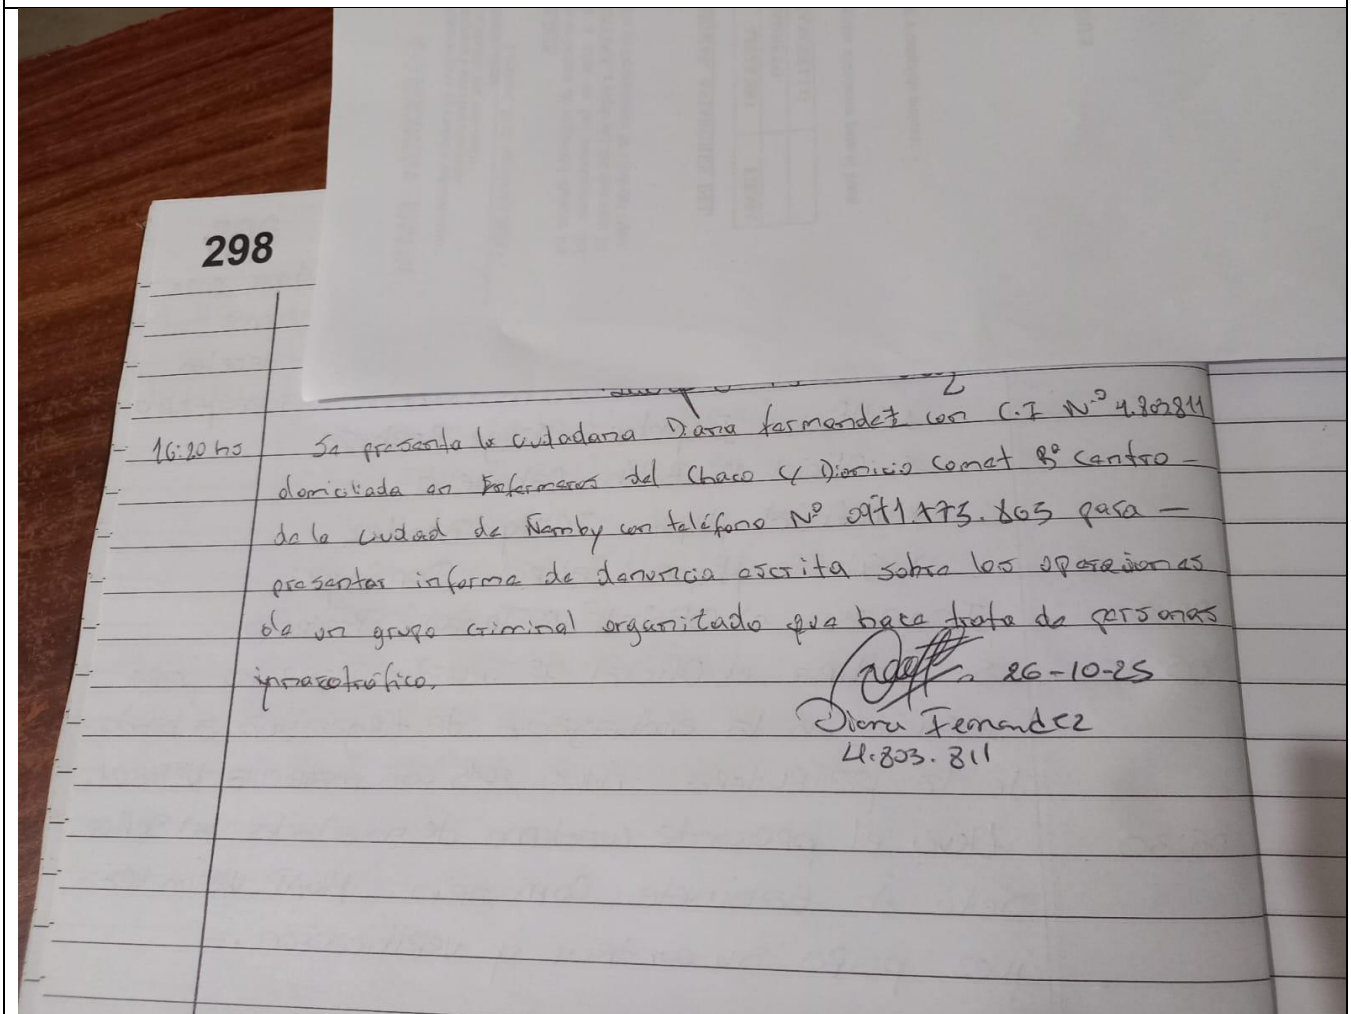 298
16:20 hs Se presenta la ciudadana Diana fernandez con C.I N.º 4.803811
domiciliada en Enfermeros del Chaco c/ Dionicio Comet Bº Centro -
de la ciudad de Ñemby con teléfono Nº 0971.175.865 para -
presentar informe de denuncia escrita sobre las operaciones
de un grupo criminal organizado que hace trata de personas
y narcotráfico.
26-10-25
Diana Fernandez
4.803.811